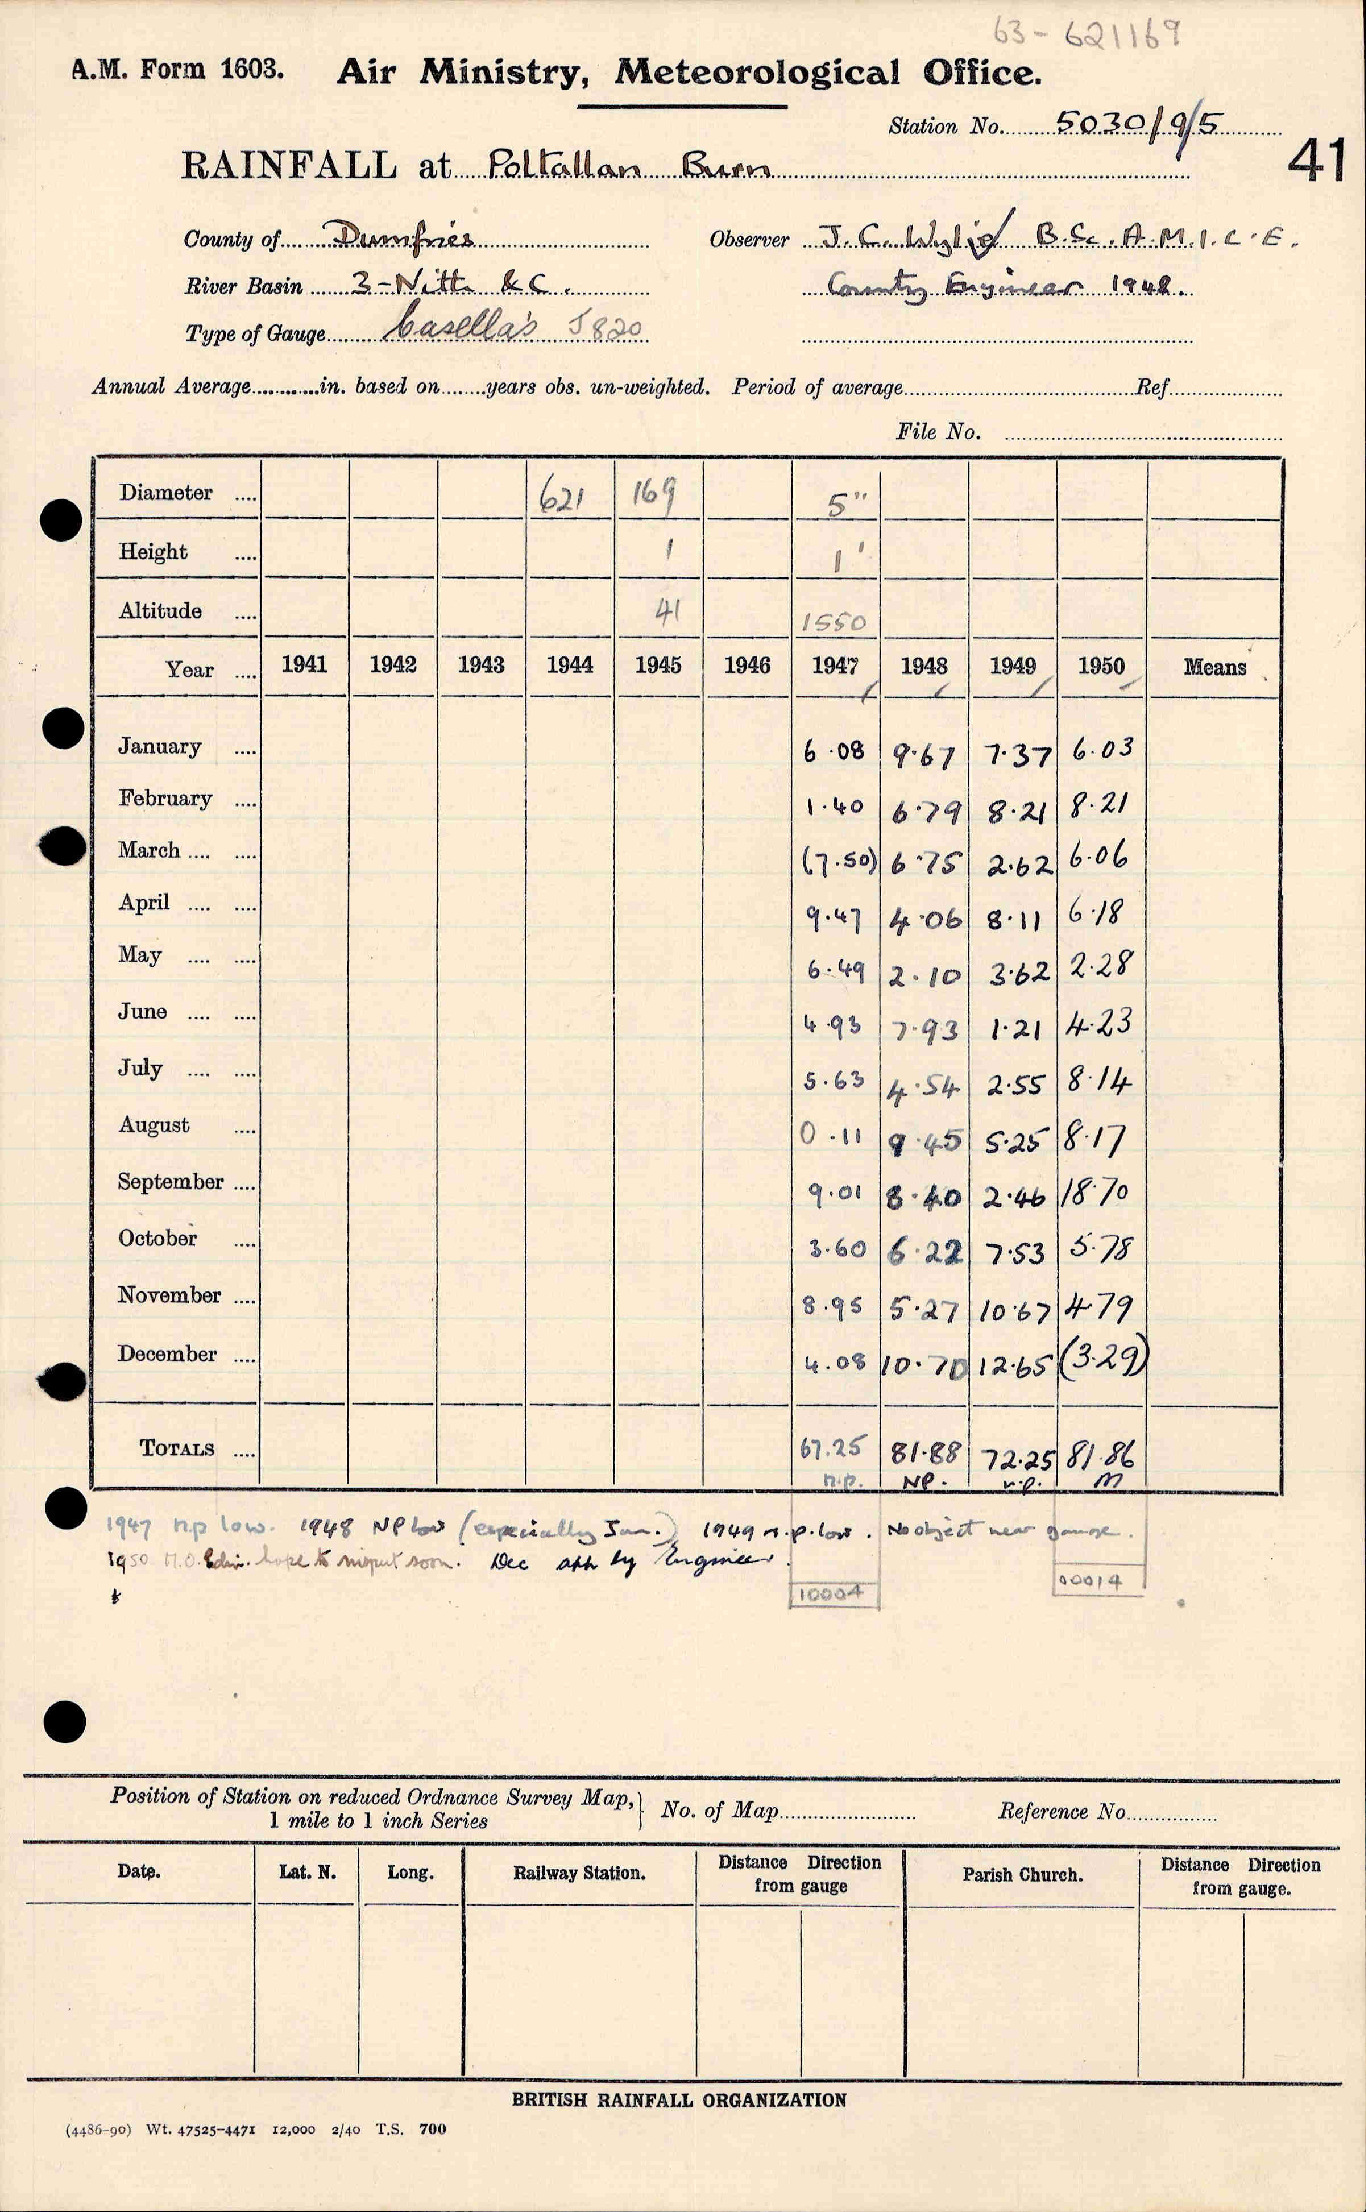 63 - 621169
A.M. Form 1603. Air Ministry, Meteorological Office.
Station No. 5030/9/5
41
RAINFALL at Poltallan Burn
County of Dumfries Observer J. C. Wylie B.Sc. A.M.I.C.E.
River Basin 3-Nith &C. County Engineer 1948.
Type of Gauge Casella's J820
Annual Average in. based on years obs. un-weighted. Period of average Ref
File No.
Diameter 621 169 5"
Height 1 1'
Altitude 41 1550
Year 1941 1942 1943 1944 1945 1946 1947 1948 1949 1950 Means
January 6.08 9.67 7.37 6.03
February 1.40 6.79 8.21 8.21
March (7.50) 6.75 2.62 6.06
April 9.47 4.06 8.11 6.18
May 6.49 2.10 3.62 2.28
June 4.93 7.93 1.21 4.23
July 5.63 4.54 2.55 8.14
August 0.11 9.45 5.25 8.17
September 9.01 8.40 2.46 18.70
October 3.60 6.22 7.53 5.78
November 8.95 5.27 10.67 4.79
December 4.08 10.70 12.65 (3.29)
TOTALS 67.25 81.88 72.25 81.86
n.p. NP. n.p. M
1947 n.p low. 1948 NP low (especially Jun.) 1949 n.p. low. No object near gauge.
1950 M.O. Edin. hope to inspect soon. Dec by Engineer.
10004 00014
Position of Station on reduced Ordnance Survey Map, No. of Map Reference No
1 mile to 1 inch Series
Date. Lat. N. Long. Railway Station. Distance Direction from gauge Parish Church. Distance Direction from gauge.
BRITISH RAINFALL ORGANIZATION
(4486-90) Wt. 47525-4471 12,000 2/40 T.S. 700